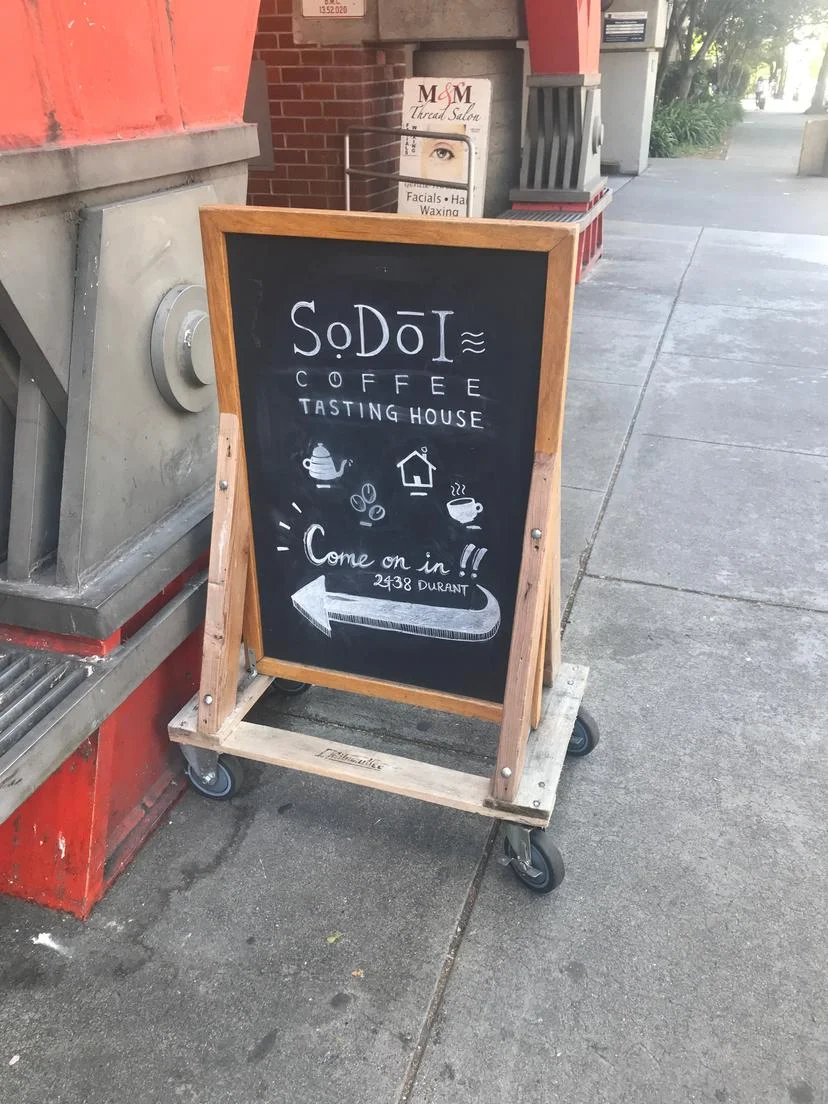 B.M.C.
13.52.020
M&M
Thread Salon
Facials • Ha
Waxing
SọDōI
COFFEE
TASTING HOUSE
Come on in !!
2438 DURANT